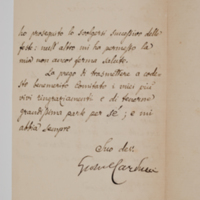 ho proseguito lo svolgersi successivo delle
feste: nell'altro mi ha permesso la
mia non ancor ferma salute.
La prego di trasmettere a code-
sto benemerito Comitato i miei più
vivi ringraziamenti e di tenersene
grandissima parte per sé; e mi
abbia sempre
Suo dev.
Giosue Carducci